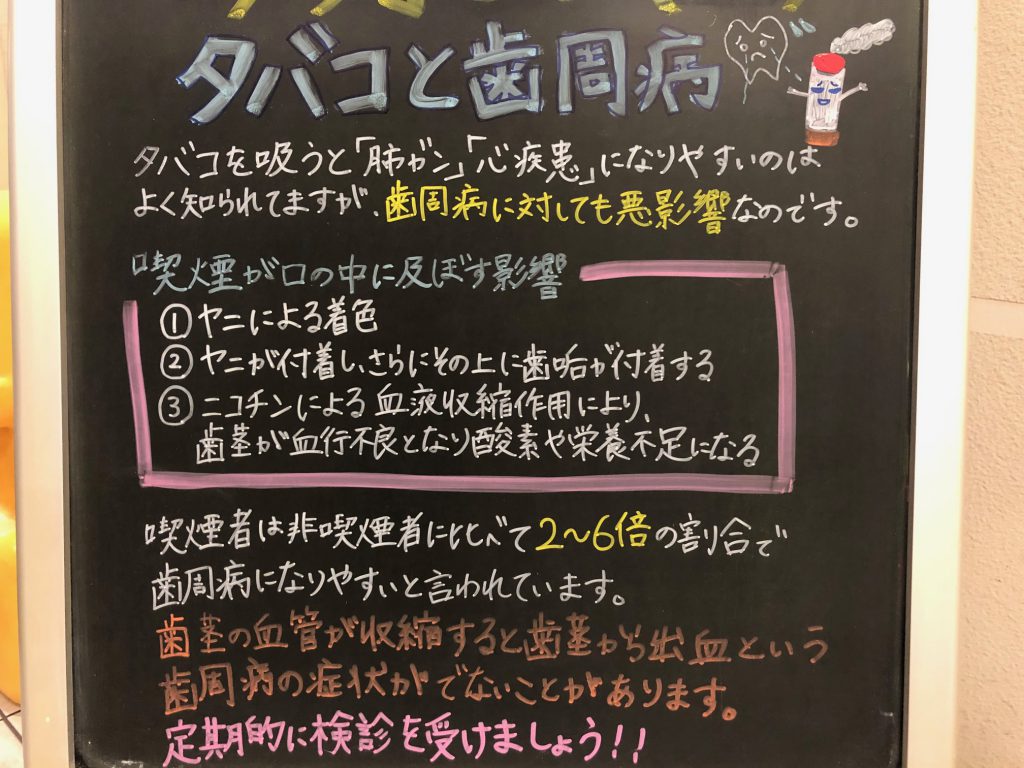 タバコと歯周病
タバコを吸うと「肺ガン」「心疾患」になりやすいのは
よく知られてますが、歯周病に対しても悪影響なのです。
喫煙が口の中に及ぼす影響
①ヤニによる着色
②ヤニが付着し、さらにその上に歯垢が付着する
③ニコチンによる血液収縮作用により、
歯茎が血行不良となり酸素や栄養不足になる
喫煙者は非喫煙者に比べて2〜6倍の割合で
歯周病になりやすいと言われています。
歯茎の血管が収縮すると歯茎から出血という
歯周病の症状がでないことがあります。
定期的に検診を受けましょう!!